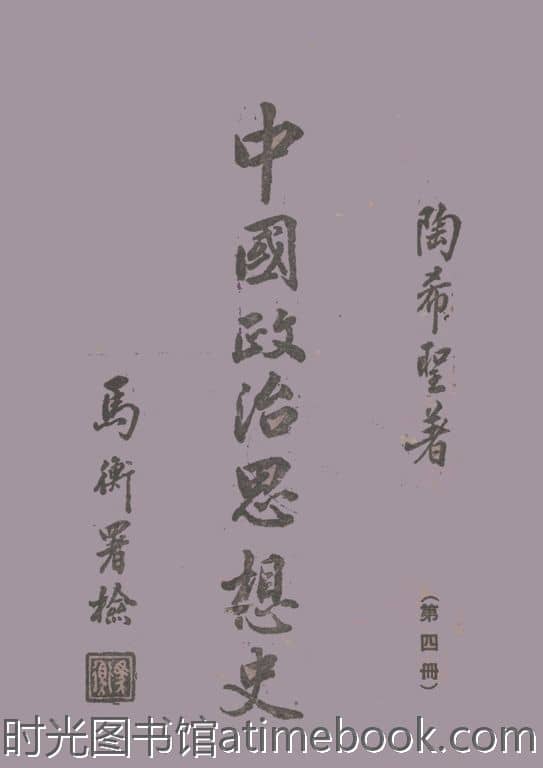 陶希聖著
(第四冊)
中國政治思想史
馬衡署檢
时光图书馆atimebook.com